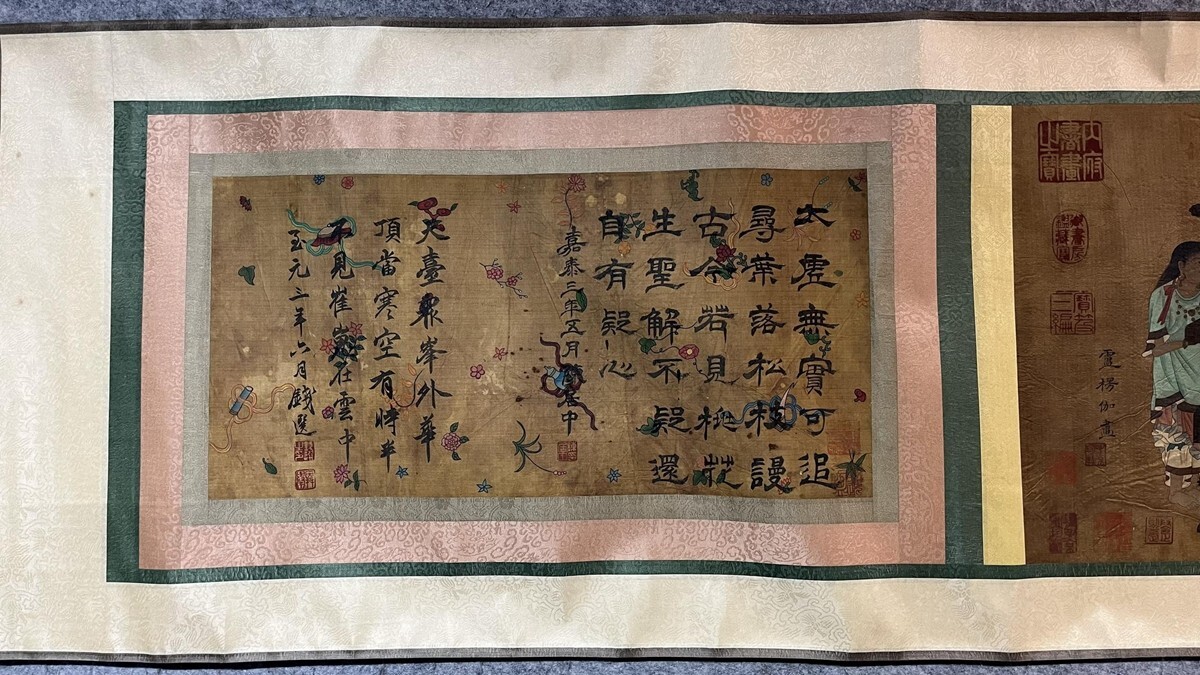 太虛無實可追
尋葉落松枝謾
古今若見桃花
生聖解不疑還
自有疑心
嘉泰三年五月陳居中
天臺眾峯外華
頂當寒空有時半
不見崔嵬在雲中
至元三年六月錢選
內府
書畫
之寶
盧楞伽畫